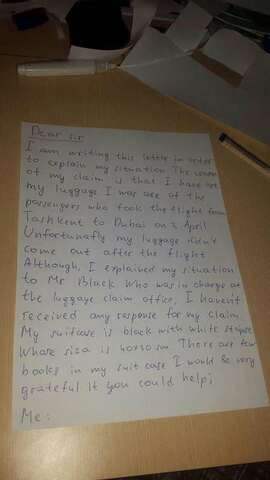 Dear sir
I am writing this letter in order
to explain my situation The reason
of my claim is that I have lost
my luggage I was one of the
passengers who took the flight from
Tashkent to Dubai on 3 April
Unfortunatly my luggage didn't
come out after the flight
Although, I explained my situation
to Mr Black who was in charge at
the luggage claim office, I haven't
received any response for my claim
My suitcase is black with white stripes
Whose size is 40x30 sm There are few
books in my suit case I would be very
grateful If you could help;
Me: